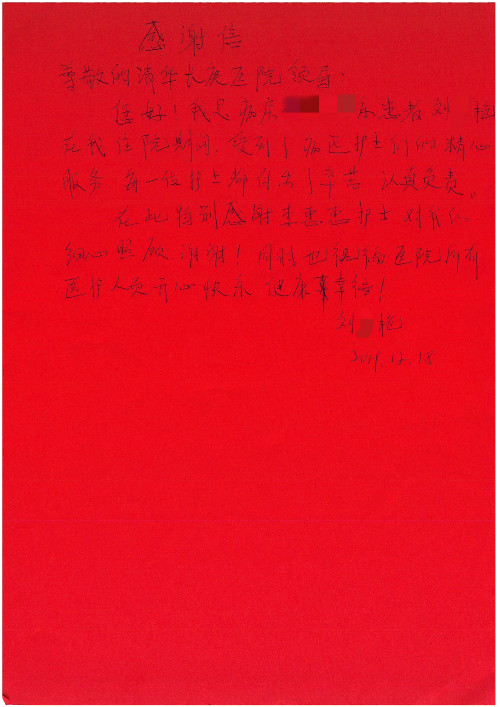 感谢信
尊敬的清华长庚医院领导：
您好！我是病床 床患者刘 艳
在我住院期间，受到了病区护士们的精心
服务 每一位护士都付出了辛苦 认真负责。
在此特别感谢李惠惠护士对我的
细心照顾 谢谢！同时也祝福医院所有
医护人员开心快乐 健康幸福！
刘 艳
2019.12.18